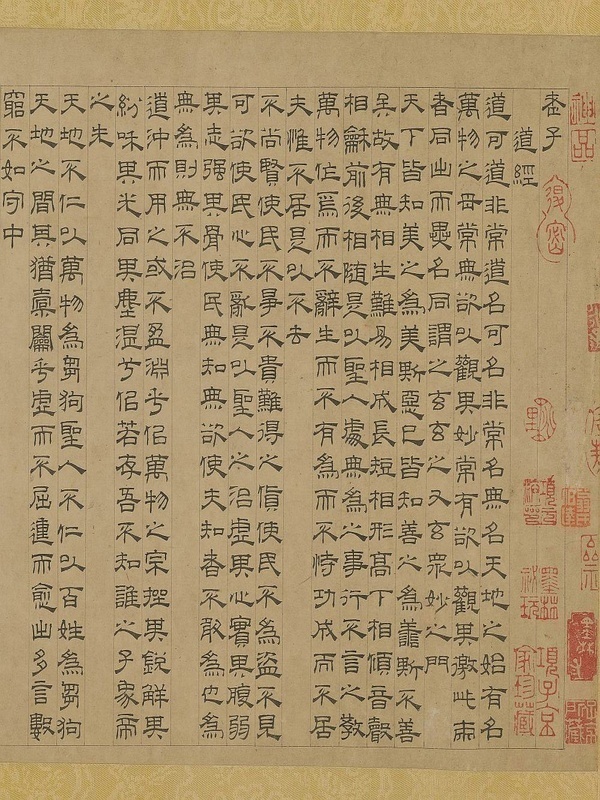 老子
道經
道可道非常道名可名非常名無名天地之始有名
萬物之母常無欲以觀其妙常有欲以觀其徼此兩
者同出而異名同謂之玄玄之又玄眾妙之門
天下皆知美之為美斯惡已皆知善之為善斯不善
矣故有無相生難易相成長短相形高下相傾音聲
相龢前後相隨是以聖人處無為之事行不言之教
萬物作焉而不辭生而不有為而不恃功成而不居
夫惟不居是以不去
不尚賢使民不爭不貴難得之貨使民不為盜不見
可欲使民心不亂是以聖人之治虛其心實其腹弱
其志強其骨使民無知無欲使夫知者不敢為也為
無為則無不治
道沖而用之或不盈淵乎佀萬物之宗挫其銳解其
紛咊其光同其塵湛兮佀若存吾不知誰之子象帝
之先
天地不仁以萬物為芻狗聖人不仁以百姓為芻狗
天地之間其猶橐籥乎虛而不屈動而愈出多言數
窮不如守中
神品
墨林祕玩
項子京家珍藏